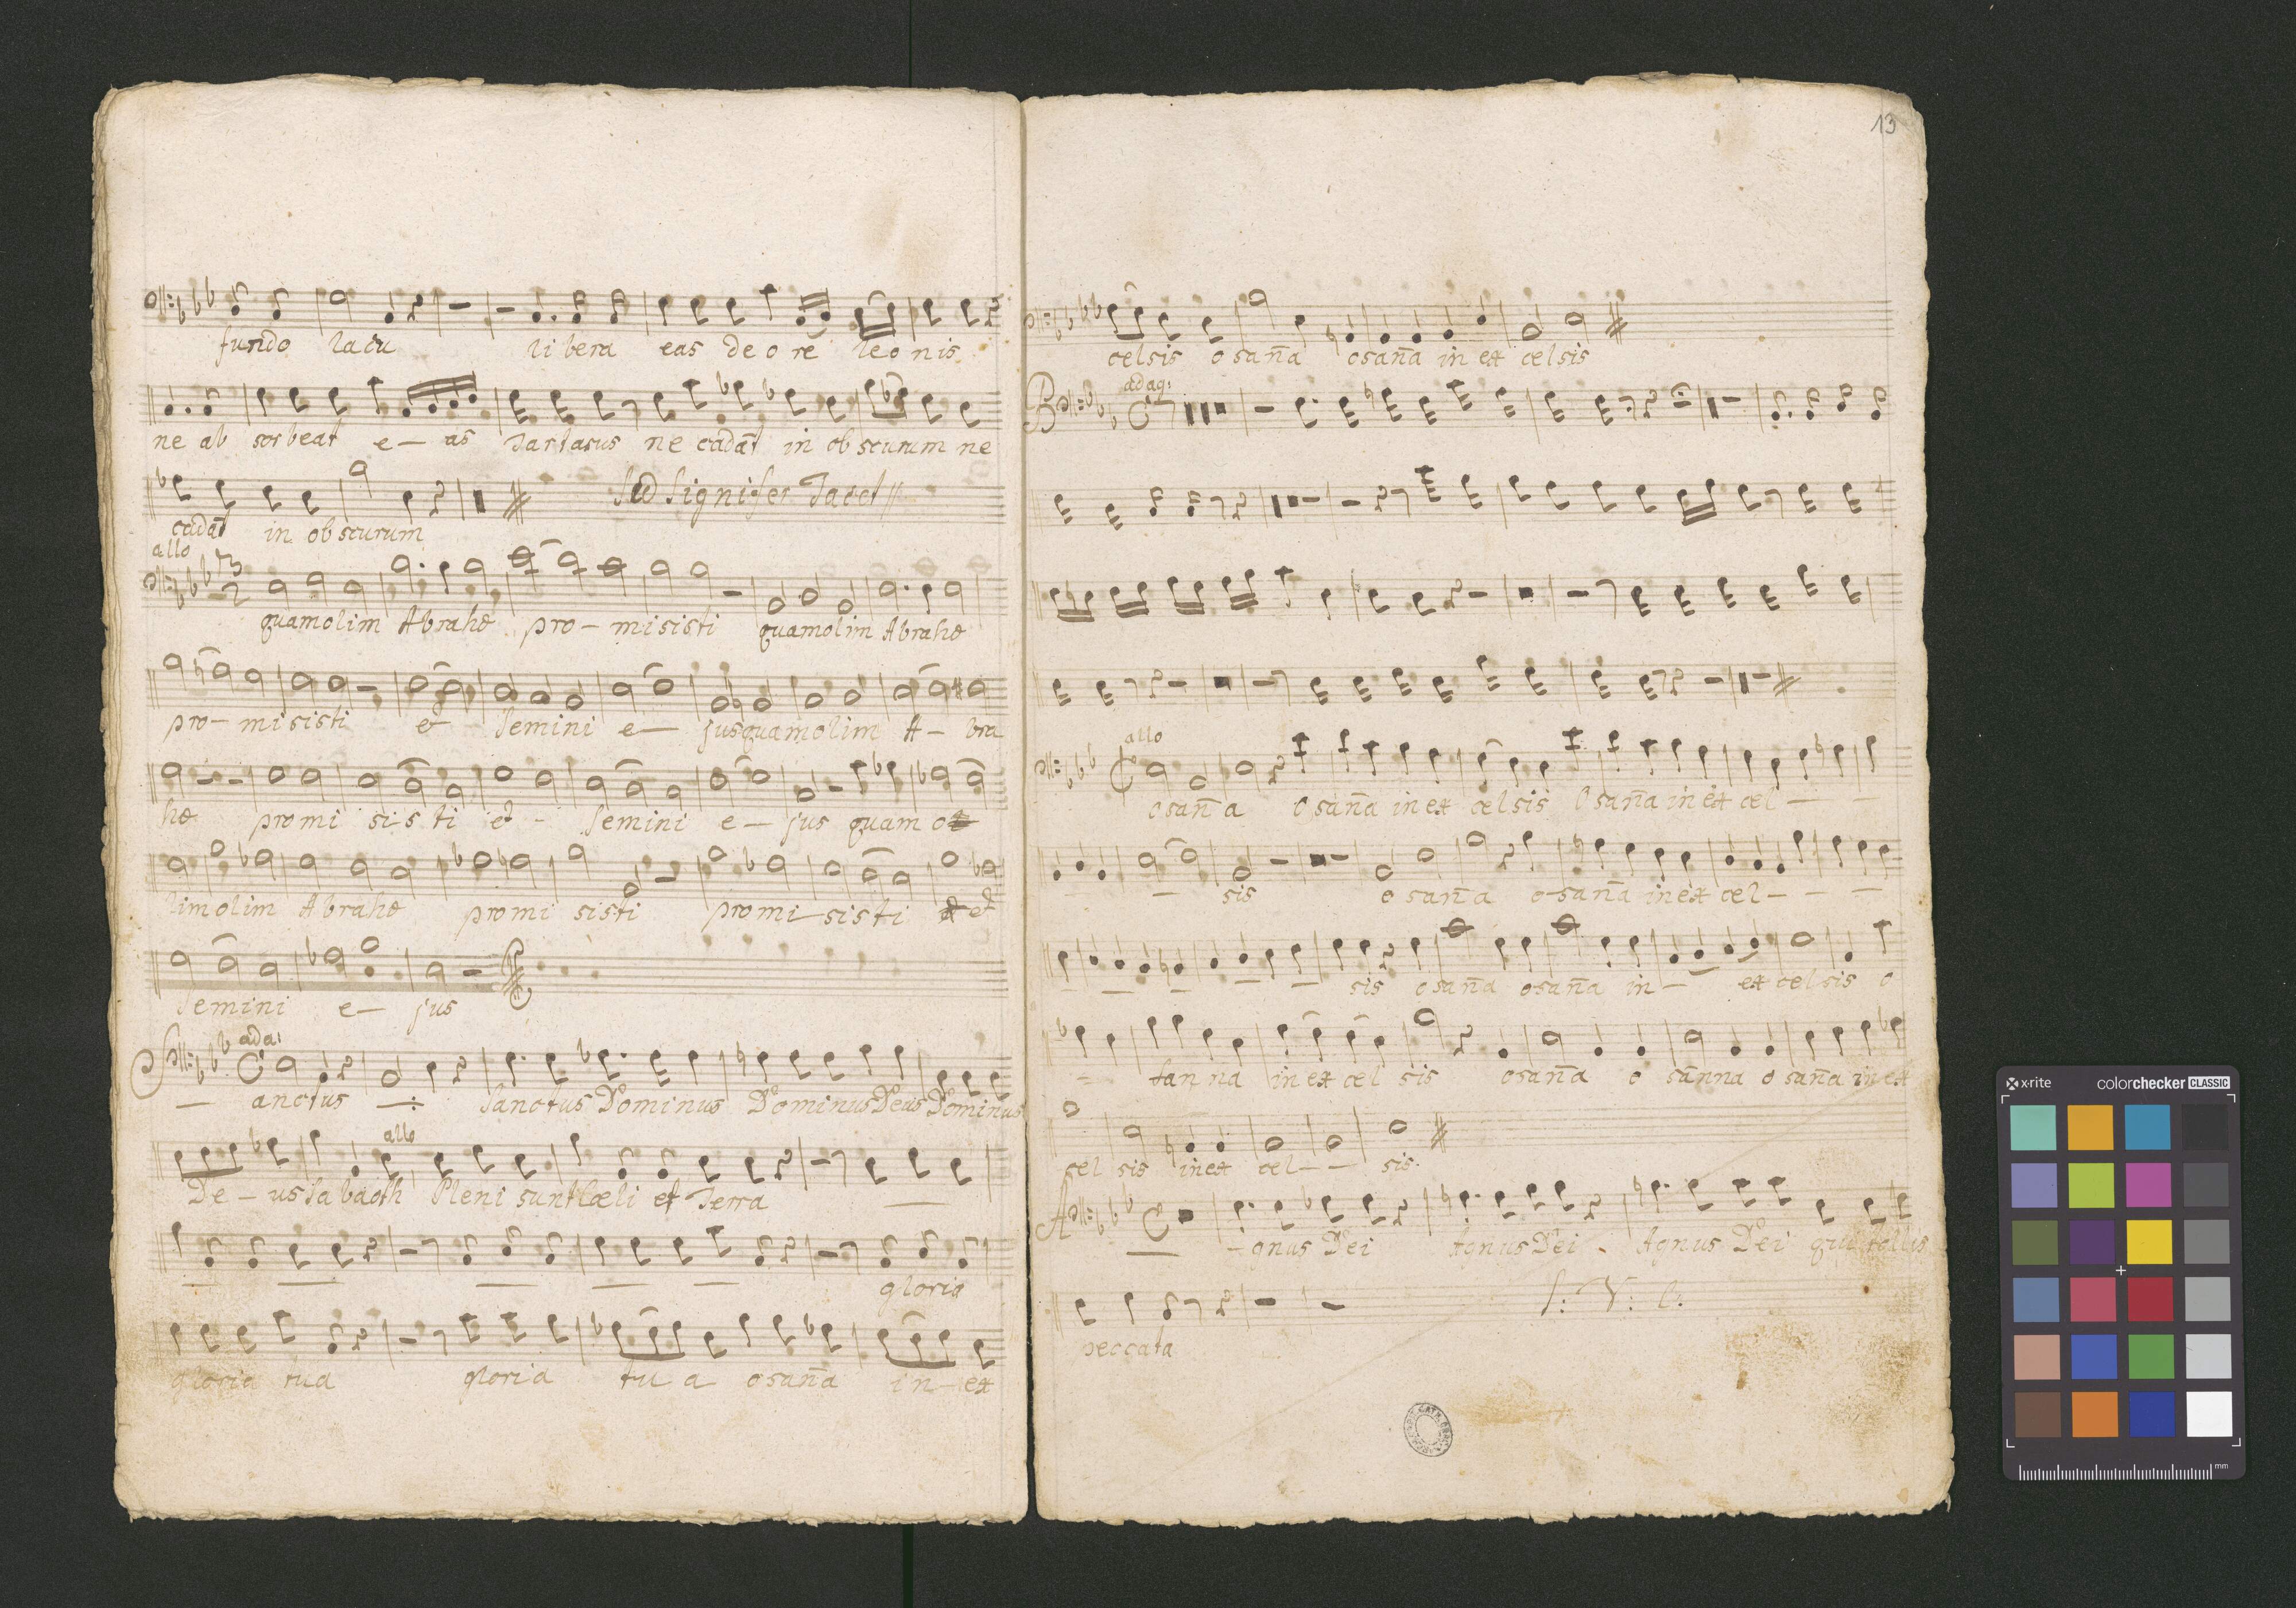 fundo lacu libera eas de o re leonis
ne ab sorbeat e — as Tartarus ne cadāt in obscurum ne
Sed Signifer Tacet //
cadāt in obscurum
allo
quamolim Abrahe pro — misisti quamolim Abrahe
pro — misisti et Semini e — jus quamolim A — bra
he promi sisti et - Semini e — jus quam o
limolim Abrahe promi sisti promi — sisti et
Semini e — jus
ada:
S — anctus —: Sanctus Dominus Dominus Deus Dominus
allo
De — us Sabaoth Pleni sunt Cæli et Terra —
— — — — — gloria
gloria tua gloria tu a osana̅ in — ex
13
celsis osan̅a osan̅a in ex celsis
B adag:
allo
Osan̅a Osan̅a in ex celsis Osan̅a in ex cel — —
— sis o san̅a o-san̅a in ex cel — — —
— — — — — sis osan̅a osan̅a in — ex celsis o
= san na in ex cel sis osan̅a o sānna o san̅a in ex
cel sis in ex cel — — sis.
A — - gnus Dei Agnus Dei - Agnus Dei qui tollis
peccata
x-rite colorchecker CLASSIC
mm